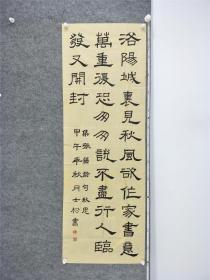 洛陽城裏見秋風欲作家書意
萬重復恐匆匆說不盡行人臨
發又開封
張籍詩句秋思
甲午年秋月士松書